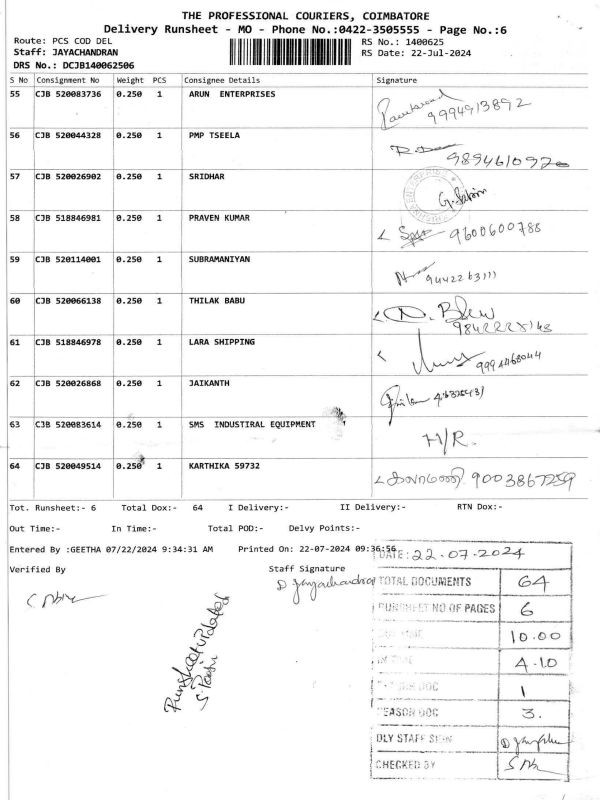 THE PROFESSIONAL COURIERS, COIMBATORE
Delivery Runsheet - MO - Phone No.:0422-3505555 - Page No.:6
Route: PCS COD DEL
RS No.: 1400625
Staff: JAYACHANDRAN
RS Date: 22-Jul-2024
DRS No.: DCJB140062506
S No Consignment No Weight PCS Consignee Details Signature
55 CJB 520083736 0.250 1 ARUN ENTERPRISES
9994913892
56 CJB 520044328 0.250 1 PMP TSEELA
9894610920
57 CJB 520026902 0.250 1 SRIDHAR
58 CJB 518846981 0.250 1 PRAVEN KUMAR
9600600788
59 CJB 520114001 0.250 1 SUBRAMANIYAN
60 CJB 520066138 0.250 1 THILAK BABU
61 CJB 518846978 0.250 1 LARA SHIPPING
62 CJB 520026868 0.250 1 JAIKANTH
63 CJB 520083614 0.250 1 SMS INDUSTIRAL EQUIPMENT
H/R.
64 CJB 520049514 0.250 1 KARTHIKA 59732
9003867259
Tot. Runsheet:- 6 Total Dox:- 64 I Delivery:- II Delivery:- RTN Dox:-
Out Time:- In Time:- Total POD:- Delvy Points:-
Entered By :GEETHA 07/22/2024 9:34:31 AM Printed On: 22-07-2024 09:36:56
DATE: 22.07.2024
Verified By Staff Signature
D Jayachandran
TOTAL DOCUMENTS 64
RUNSHEET NO OF PAGES 6
OUT TIME 10.00
IN TIME 4.10
DOC 1
REASON DOC 3.
DLY STAFF SIGN
CHECKED BY
Runsheet updated